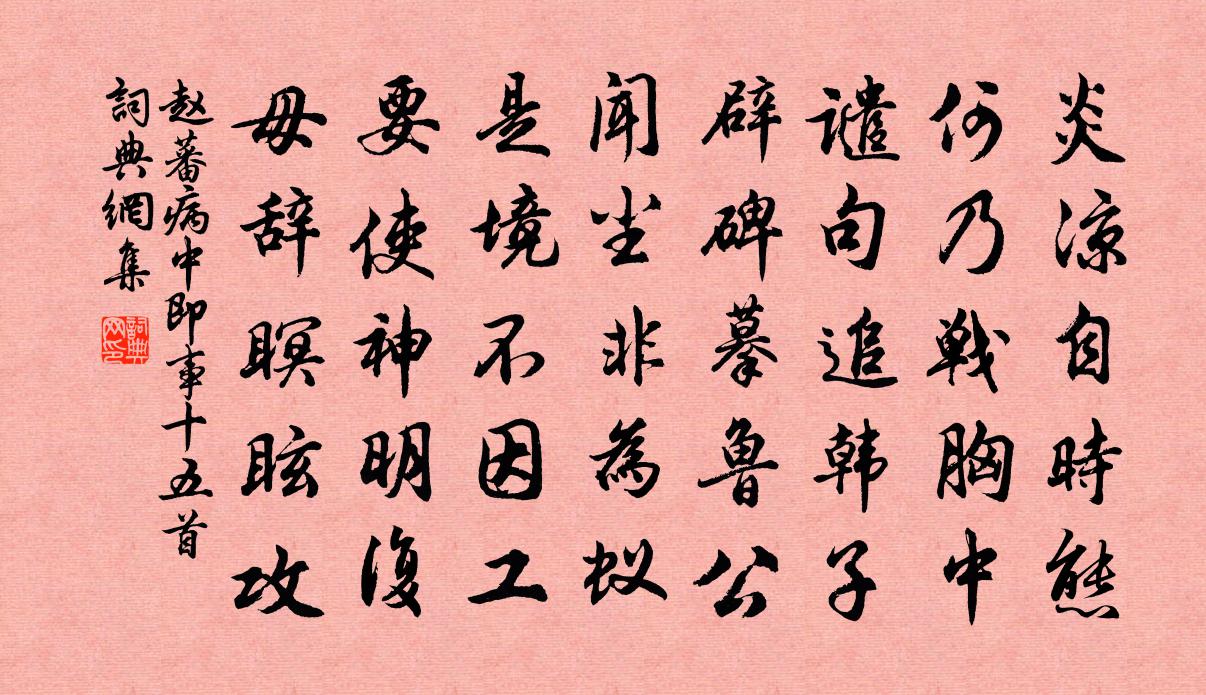 炎凉自時態
何乃戦胸中
譴句追韩子
辟碑摹鲁公
闻坐非為蚁
是境不因工
要使神明復
毋辞瞑眩攻
赵蕃病中即事十五首
詞典網集
詞典网印